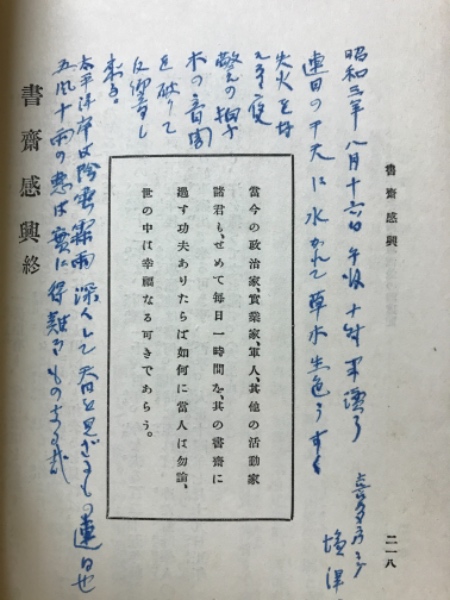 書齋感興
二一八
昭和三年八月十六日 午後十時半
連日の干天に水かれて草木生色うすく
失火を
警の拍子
木の音闇
を破りて
反響し
来る。
當今の政治家、實業家、軍人、其他の活動家
諸君も、せめて毎日一時間を、其の書齋に
過す功夫ありたらば如何に當人は勿論、
世の中は幸福なる可きであらう。
太平洋岸は陰雲霖雨深くして天日を見ざるもの連日也
五風十雨の惠は實に得難きものなる哉
書齋感興終